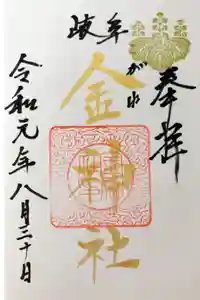 奉拝
岐阜
がね
金神社
令和元年八月三十日